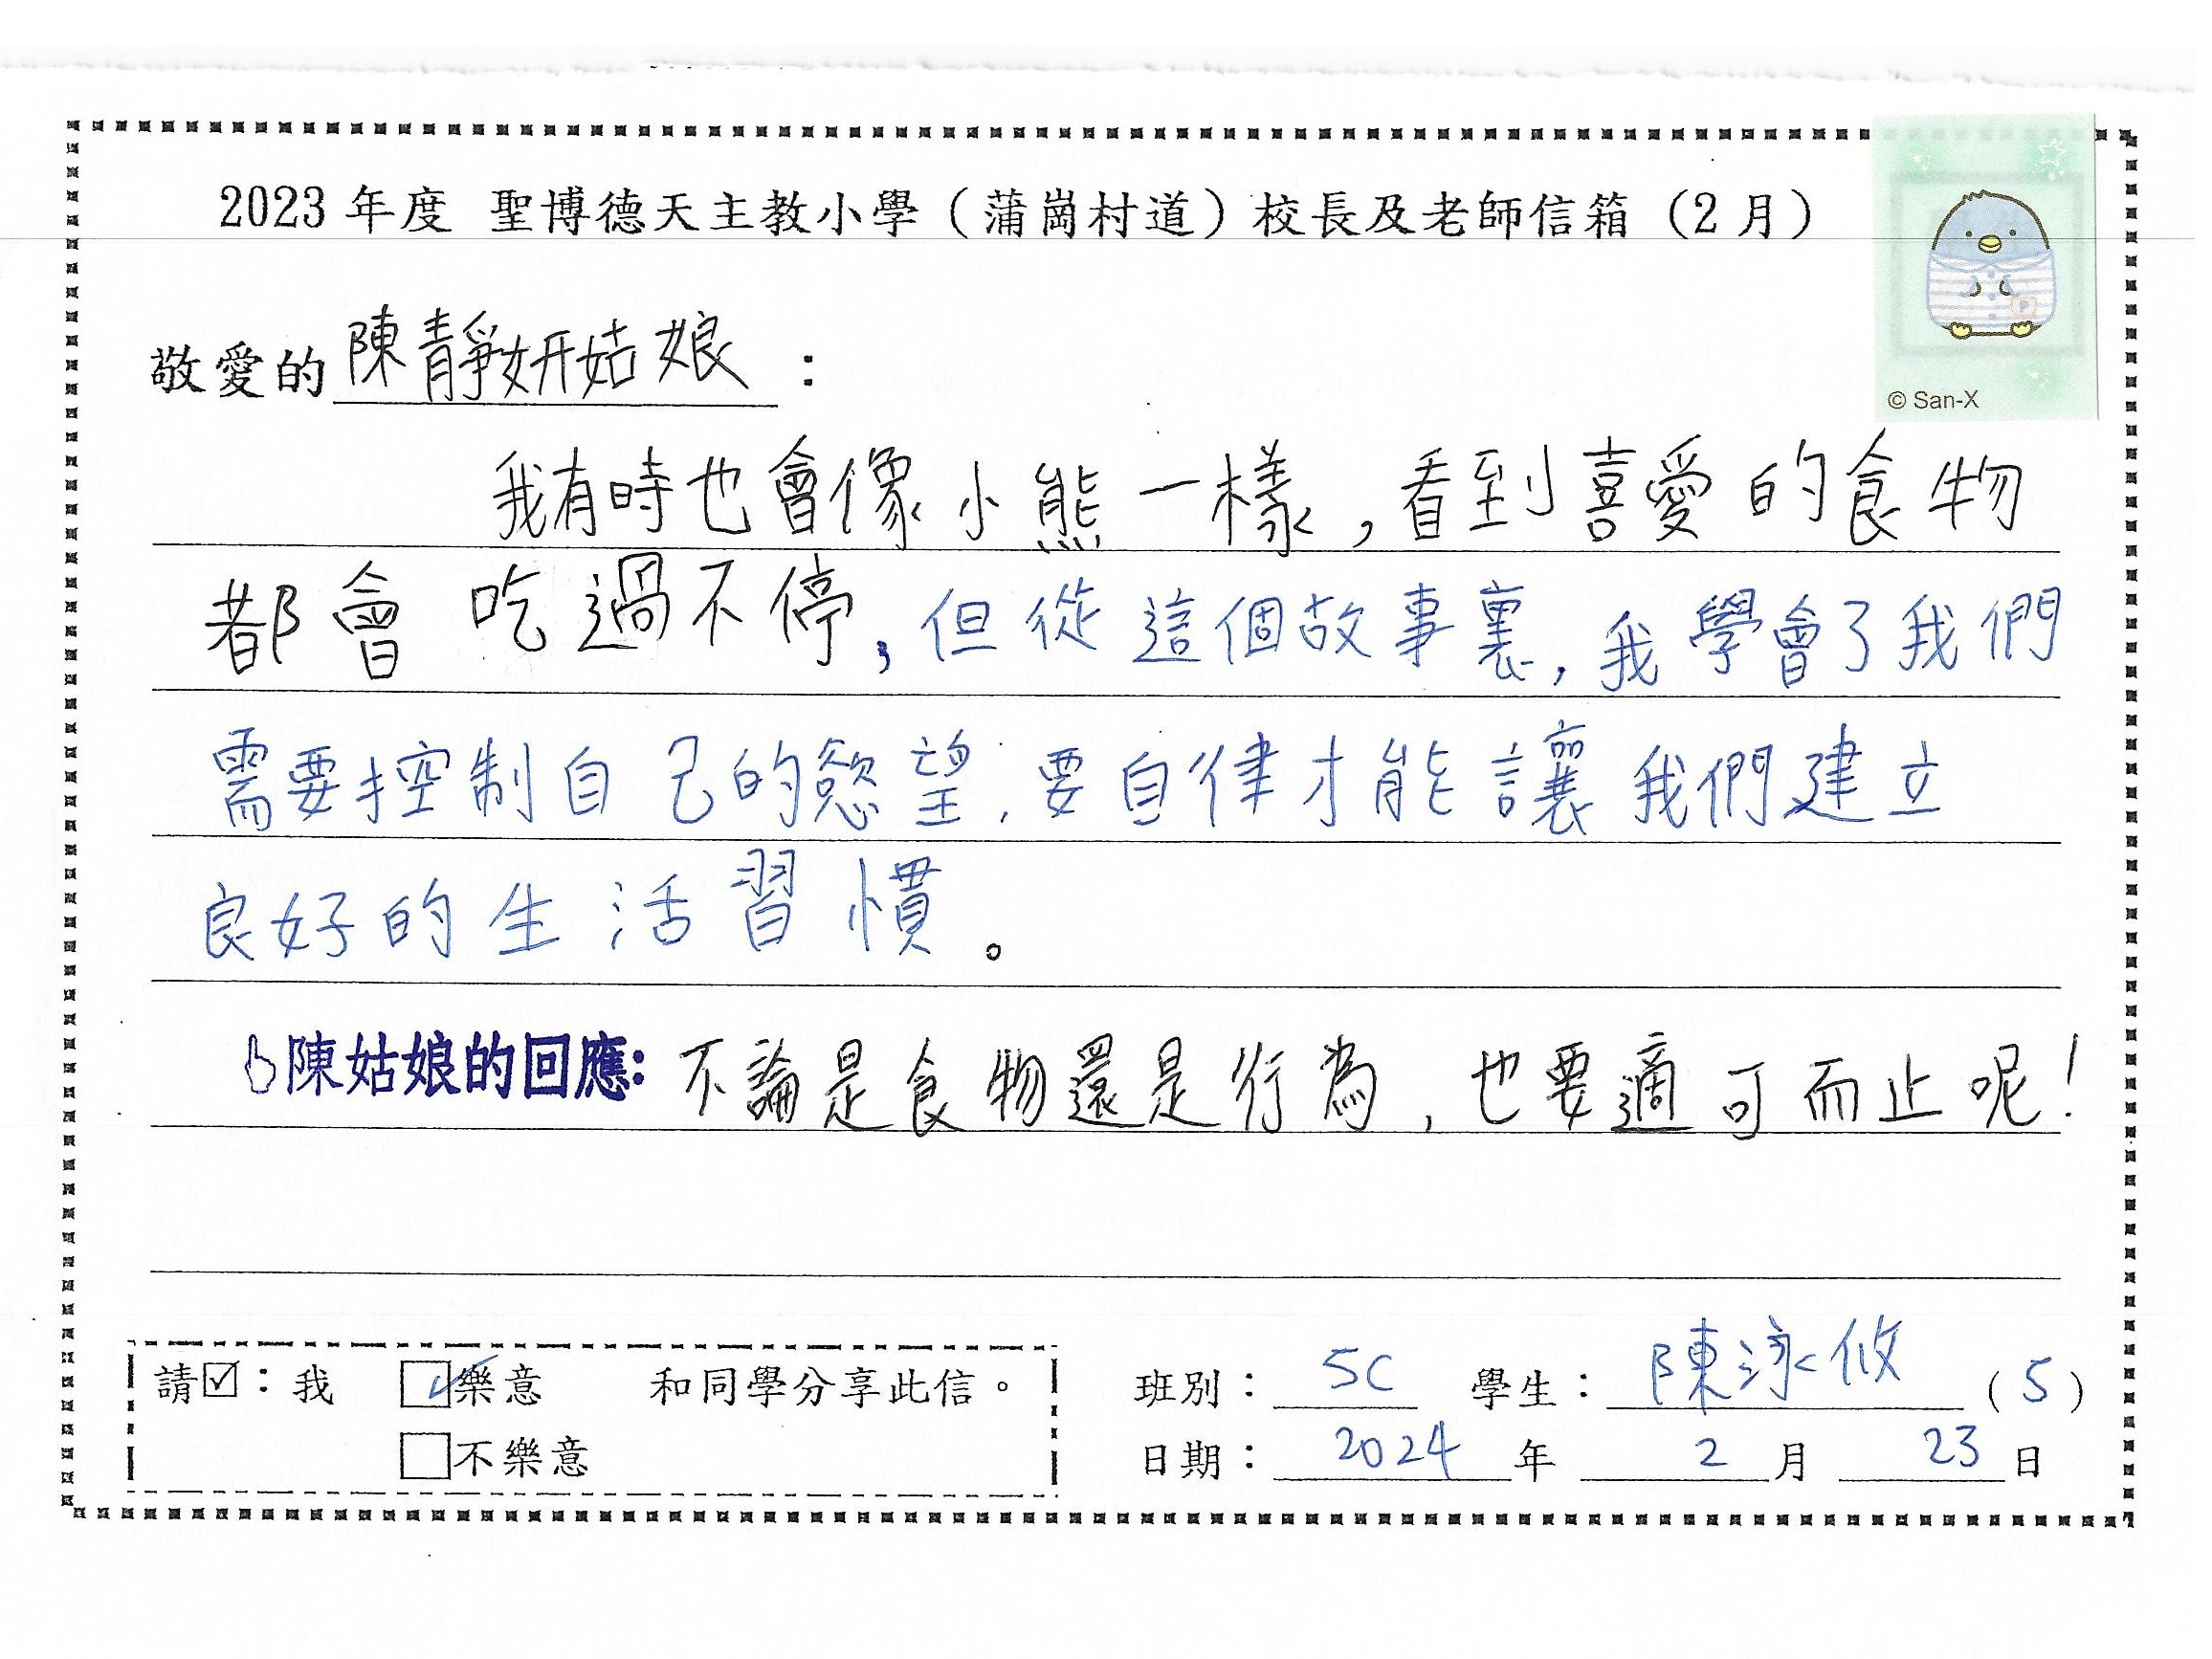 2023 年度 聖博德天主教小學（蒲崗村道）校長及老師信箱（2 月）
© San-X
敬愛的 陳靜妍姑娘：
我有時也會像小熊一樣，看到喜愛的食物
都會吃過不停，但從這個故事裏，我學會了我們
需要控制自己的慾望，要自律才能讓我們建立
良好的生活習慣。
陳姑娘的回應：不論是食物還是行為，也要適可而止呢！
請☑：我 ☑樂意 和同學分享此信。
□不樂意
班別：5C 學生：陳泳攸（5）
日期：2024 年 2 月 23 日